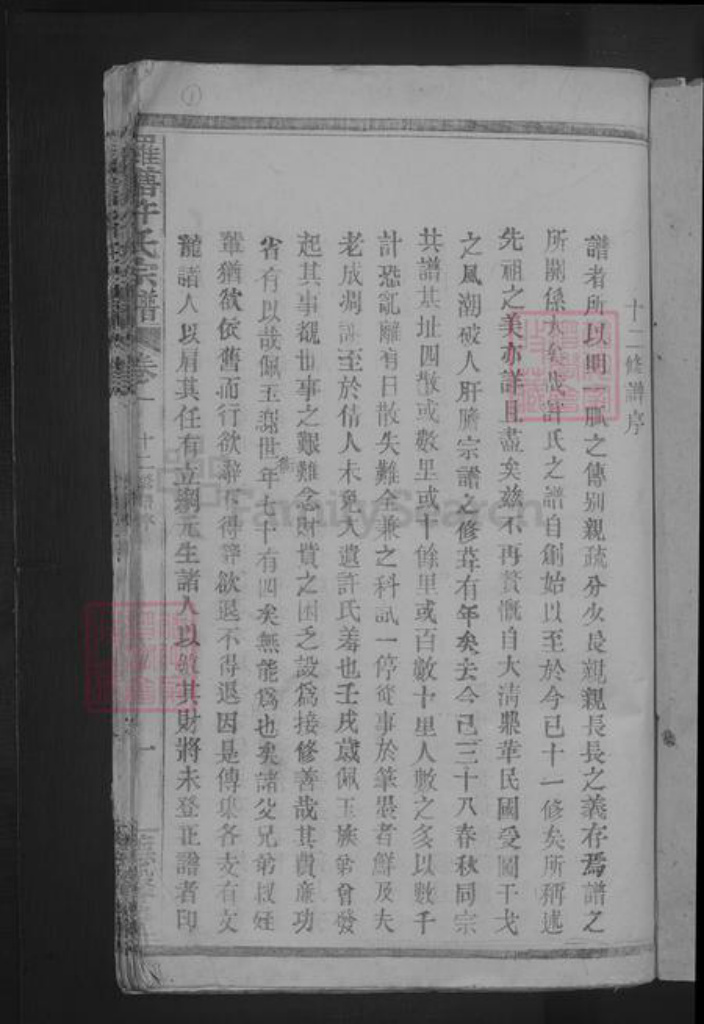 十二修譜序
譜者所以明一脈之傳别親疏分少長親親長長之義存焉譜之
所關係大矣哉許氏之譜自創始以至於今已十一修矣所稱述
先祖之美亦詳且盡矣兹不再贅慨自大清鼎革民國受圖干戈
之風潮破人肝膽宗譜之修葺有年矣去今己三十八春秋同宗
共譜基址四散或數里或十餘里或百數十里人數之多以數千
計恐亂離有日散失難全兼之科試一停從事於筆墨者鮮及夫
老成凋謝至於倩人未免大遺許氏羞也壬戌歲佩玉族弟曾發
起其事覩世事之艱難念財貲之困乏設爲接修善哉其費廉功
省有以哉佩玉謝世年七十有四矣無能爲也矣諸父兄弟叔姪
輩猶欲依舊而行欲辭不得辭欲退不得退因是傳集各支有文
諸人以肩其任有立綱元生諸人以 其財將未登正譜者印
許氏宗譜
卷一
十二修譜序
一
FamilySearch